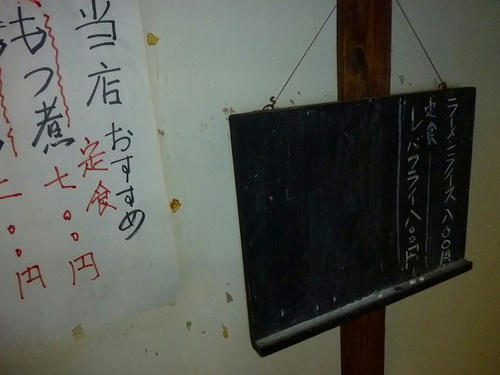 当店おすすめ
定食
もつ煮
七〇〇円
二〇〇円
ラーメンライス八〇〇円
定食
レバフライ八〇〇円